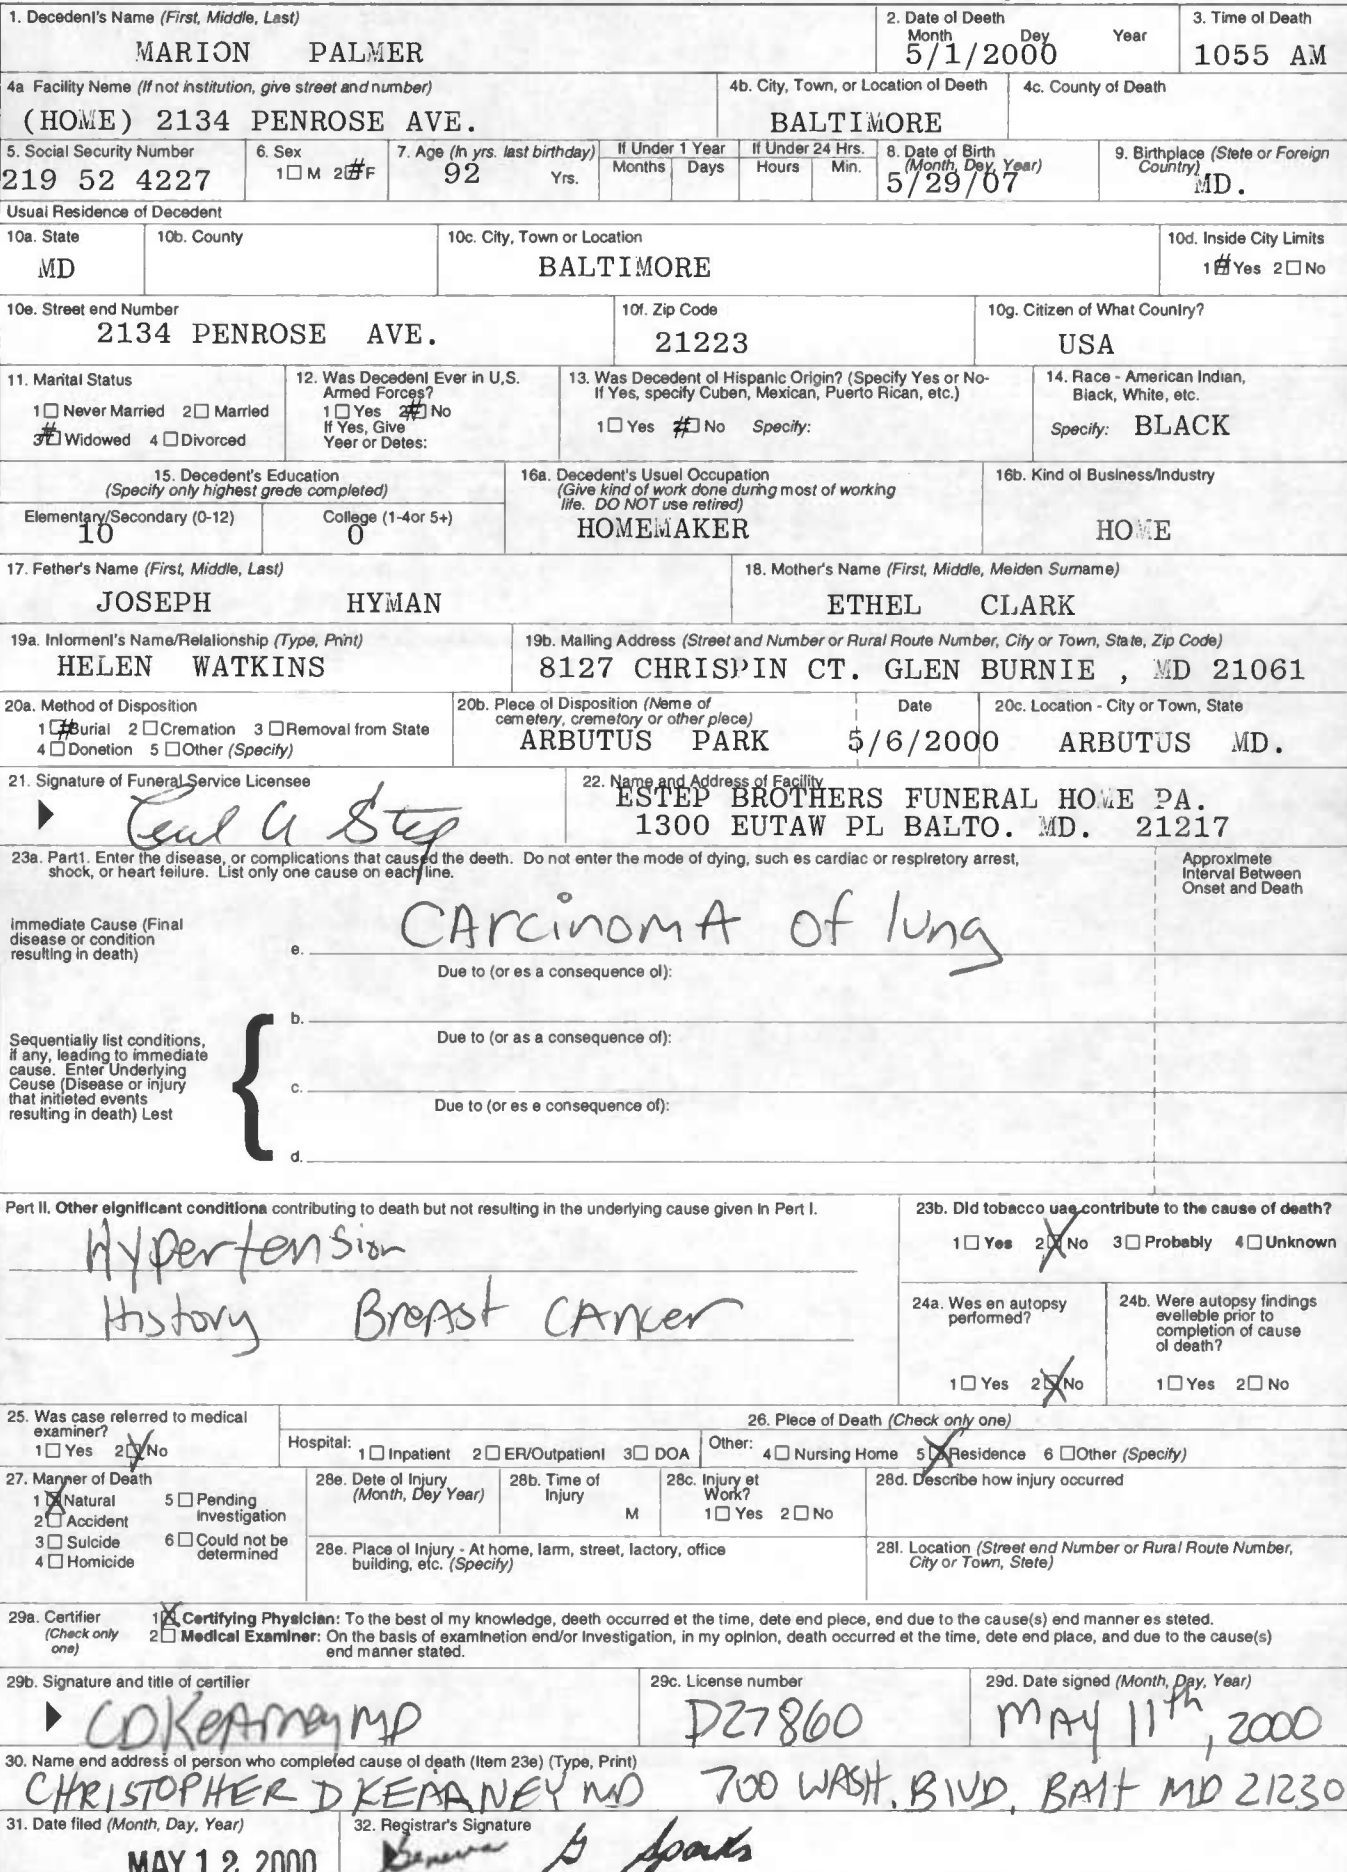 1. Decedent's Name (First, Middle, Last)
MARION PALMER
2. Date of Deeth
Month Dey Year
5/1/2000
3. Time of Death
1055 AM
4a Facility Name (If not institution, give street and number)
(HOME) 2134 PENROSE AVE.
4b. City, Town, or Location of Deeth
BALTIMORE
4c. County of Death
5. Social Security Number
219 52 4227
6. Sex
1 M 2 # F
7. Age (In yrs. last birthday)
92 Yrs.
If Under 1 Year
Months Days
If Under 24 Hrs.
Hours Min.
8. Date of Birth
(Month, Dey, Year)
5/29/07
9. Birthplace (Stete or Foreign
Country)
MD.
Usual Residence of Decedent
10a. State
MD
10b. County
10c. City, Town or Location
BALTIMORE
10d. Inside City Limits
1 # Yes 2 No
10e. Street end Number
2134 PENROSE AVE.
10f. Zip Code
21223
10g. Citizen of What Country?
USA
11. Marital Status
1 Never Married 2 Married
3 # Widowed 4 Divorced
12. Was Decedent Ever in U.S.
Armed Forces?
1 Yes 2 # No
If Yes, Give
Yeer or Detes:
13. Was Decedent of Hispanic Origin? (Specify Yes or No-
If Yes, specify Cuben, Mexican, Puerto Rican, etc.)
1 Yes # No Specify:
14. Race - American Indian,
Black, White, etc.
Specify: BLACK
15. Decedent's Education
(Specify only highest grede completed)
Elementary/Secondary (0-12)
10
College (1-4or 5+)
0
16a. Decedent's Usuel Occupation
(Give kind of work done during most of working
life. DO NOT use retired)
HOMEMAKER
16b. Kind of Business/Industry
HOME
17. Father's Name (First, Middle, Last)
JOSEPH HYMAN
18. Mother's Name (First, Middle, Meiden Surname)
ETHEL CLARK
19a. Informent's Name/Relationship (Type, Print)
HELEN WATKINS
19b. Mailing Address (Street and Number or Rural Route Number, City or Town, State, Zip Code)
8127 CHRISPIN CT. GLEN BURNIE , MD 21061
20a. Method of Disposition
1 # Burial 2 Cremation 3 Removal from State
4 Donetion 5 Other (Specify)
20b. Plece of Disposition (Neme of
cemetery, cremetory or other plece)
ARBUTUS PARK
Date
5/6/2000
20c. Location - City or Town, State
ARBUTUS MD.
21. Signature of Funeral Service Licensee
22. Name and Address of Facility
ESTEP BROTHERS FUNERAL HOME PA.
1300 EUTAW PL BALTO. MD. 21217
23a. Part1. Enter the disease, or complications that caused the deeth. Do not enter the mode of dying, such es cardiac or respiretory arrest,
shock, or heart feilure. List only one cause on each line.
Approximete
Interval Between
Onset and Death
Immediate Cause (Final
disease or condition
resulting in death)
e. CArcinomA of lung
Due to (or es a consequence of):
b.
Due to (or as a consequence of):
Sequentially list conditions,
if any, leading to immediate
cause. Enter Underlying
Ceuse (Disease or injury
that initieted events
resulting in death) Lest
c.
Due to (or es e consequence of):
d.
Part II. Other eignificant conditiona contributing to death but not resulting in the underlying cause given in Part I.
Hypertension
History BreAst CAncer
23b. Did tobacco uae contribute to the cause of death?
1 Yes 2 X No 3 Probably 4 Unknown
24a. Wes en autopsy
performed?
1 Yes 2 X No
24b. Were autopsy findings
evelleble prior to
completion of cause
of death?
1 Yes 2 No
25. Was case referred to medical
examiner?
1 Yes 2 X No
26. Plece of Death (Check only one)
Hospital: 1 Inpatient 2 ER/Outpatient 3 DOA Other: 4 Nursing Home 5 X Residence 6 Other (Specify)
27. Manner of Death
1 X Natural 5 Pending
Investigation
2 Accident
3 Suicide 6 Could not be
determined
4 Homicide
28e. Dete of Injury
(Month, Dey Year)
28b. Time of
Injury
M
28c. Injury et
Work?
1 Yes 2 No
28d. Describe how injury occurred
28e. Place of Injury - At home, farm, street, factory, office
building, etc. (Specify)
28f. Location (Street end Number or Rural Route Number,
City or Town, Stete)
29a. Certifier
(Check only
one)
1 X Certifying Physician: To the best of my knowledge, deeth occurred et the time, dete end plece, end due to the cause(s) end manner es steted.
2 Medical Examiner: On the basis of examinetion end/or investigation, in my opinion, death occurred et the time, dete end place, and due to the cause(s)
end manner stated.
29b. Signature and title of certifier
CDKeArney MD
29c. License number
D27860
29d. Date signed (Month, Day, Year)
MAY 11th, 2000
30. Name end address of person who completed cause of death (Item 23e) (Type, Print)
CHRISTOPHER D KEARNEY MD 700 WASH. BLVD. BAlt MD 21230
31. Date filed (Month, Day, Year)
MAY 12 2000
32. Registrar's Signature
G Sparks